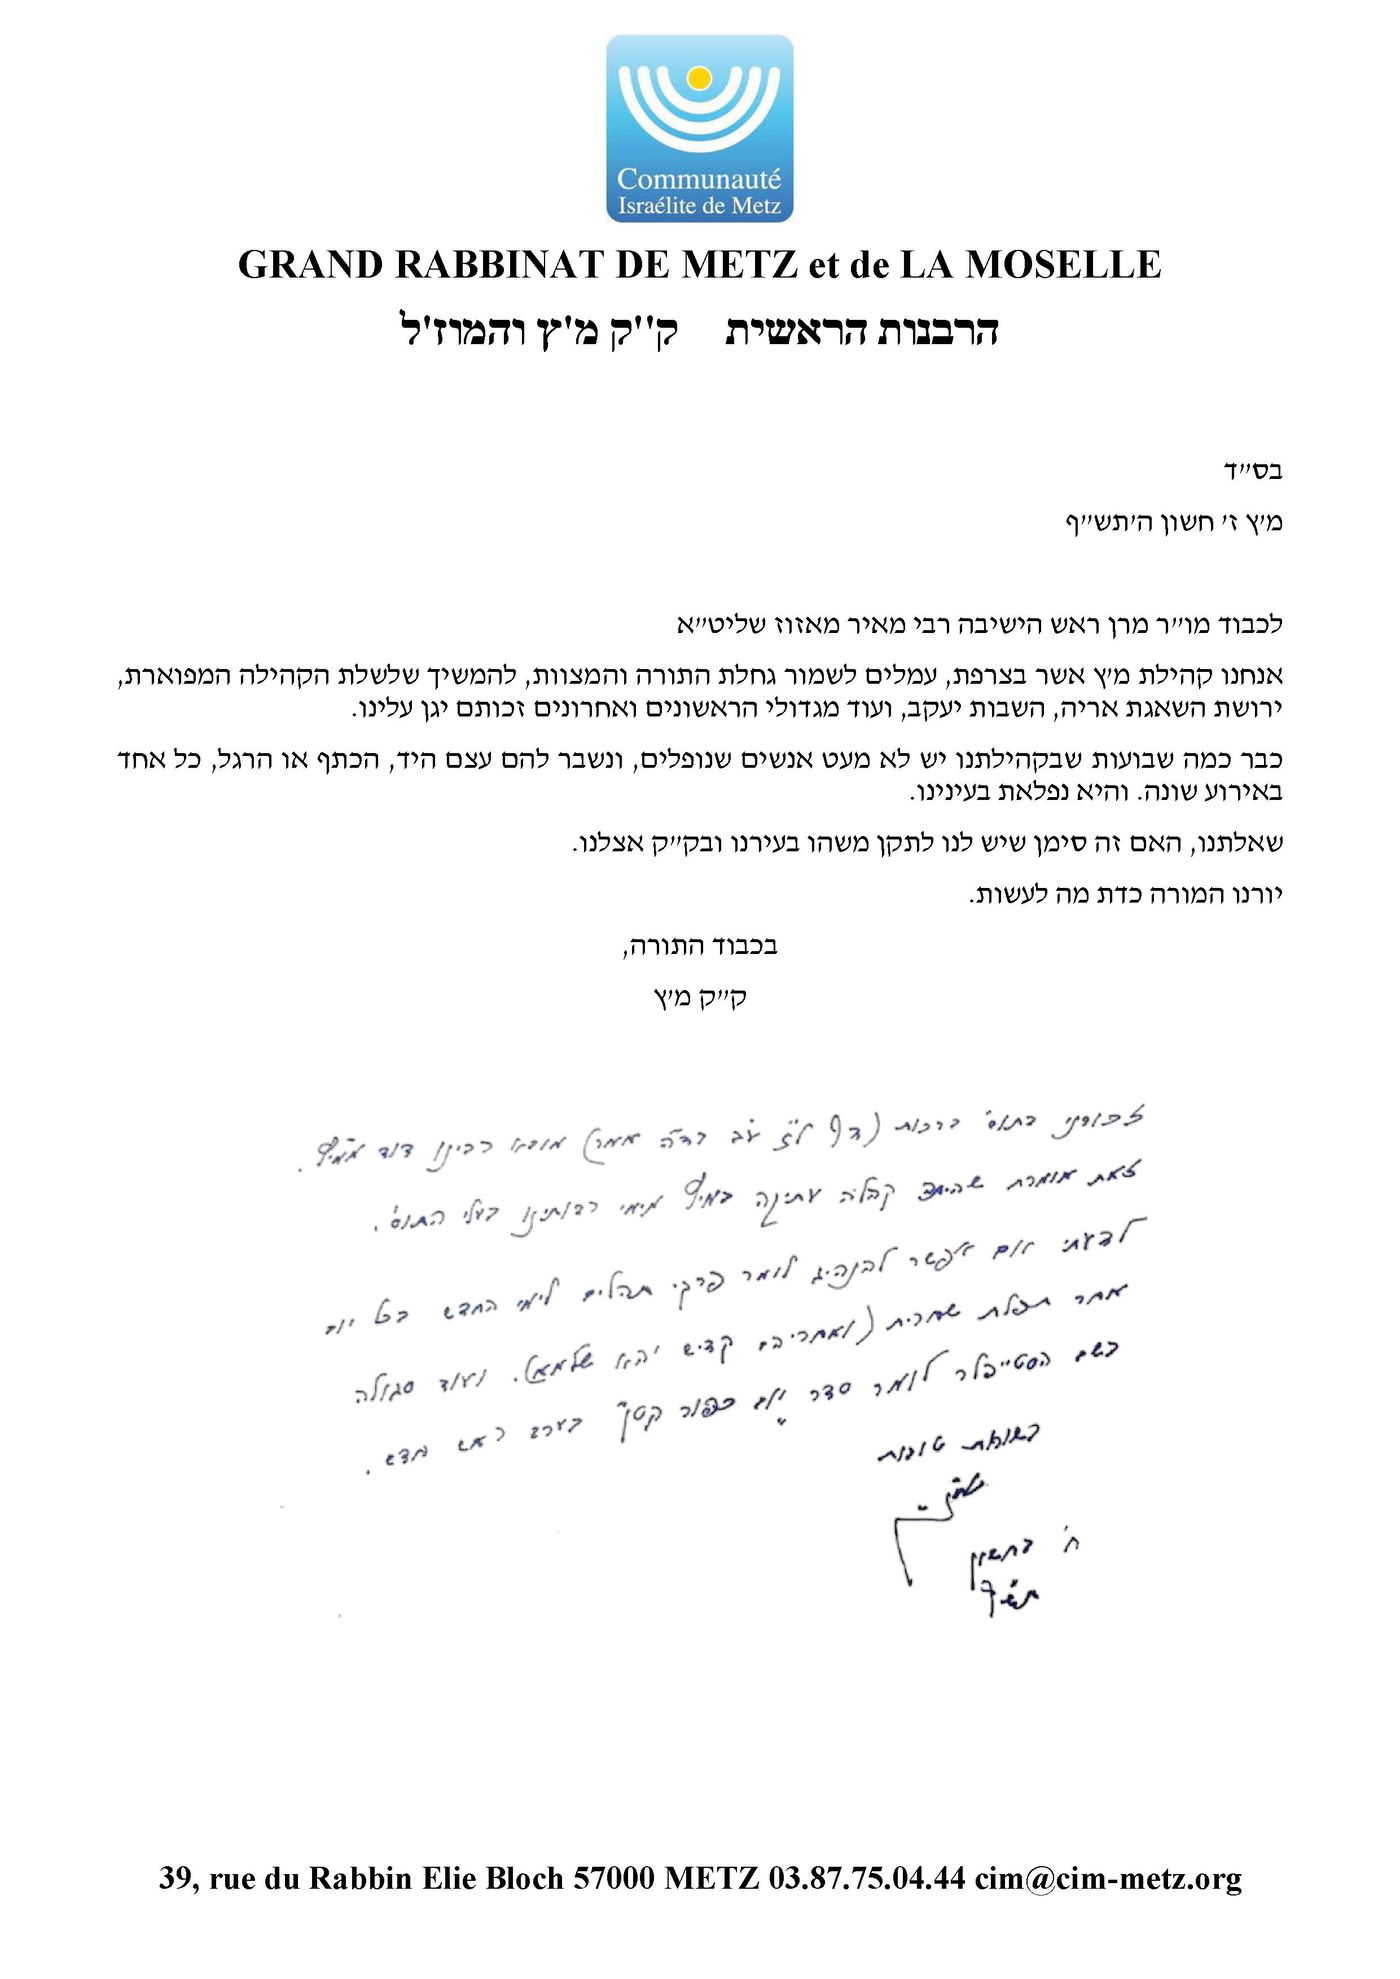 Communauté
Israélite de Metz
GRAND RABBINAT DE METZ et de LA MOSELLE
הרבנות הראשית ק''ק מ'ץ והמוז'ל
בס״ד
מ׳ץ ז׳ חשון ה׳תש״ף
לכבוד מו״ר מרן ראש הישיבה רבי מאיר מאזוז שליט״א
אנחנו קהילת מ׳ץ אשר בצרפת, עמלים לשמור גחלת התורה והמצוות, להמשיך שלשלת הקהילה המפוארת,
ירושת השאגת אריה, השבות יעקב, ועוד מגדולי הראשונים ואחרונים זכותם יגן עלינו.
כבר כמה שבועות שבקהילתנו יש לא מעט אנשים שנופלים, ונשבר להם עצם היד, הכתף או הרגל, כל אחד
באירוע שונה. והיא נפלאת בעינינו.
שאלתנו, האם זה סימן שיש לנו לתקן משהו בעירנו ובק״ק אצלנו.
יורנו המורה כדת מה לעשות.
בכבוד התורה,
ק״ק מ׳ץ
זכורני בתוס׳ ברכות (דף ל״ז ע״ב בד״ה אמר) מובא רבינו דוד ממיץ.
זאת אומרת שהיתה קהלה עתיקה במיץ מימי רבותינו בעלי התוס׳.
לדעתי אם אפשר להנהיג לומר פרקי תהלים לימי החדש בכל יום
אחר תפלת שחרית (ואחריהם קדיש יהא שלמא). ועוד סגולה
בשם הסטייפלר לומר סדר "יום כפור קטן" בערב ראש חדש.
בשורות טובות
ח׳ בחשון
תש״ף
39, rue du Rabbin Elie Bloch 57000 METZ 03.87.75.04.44 cim@cim-metz.org